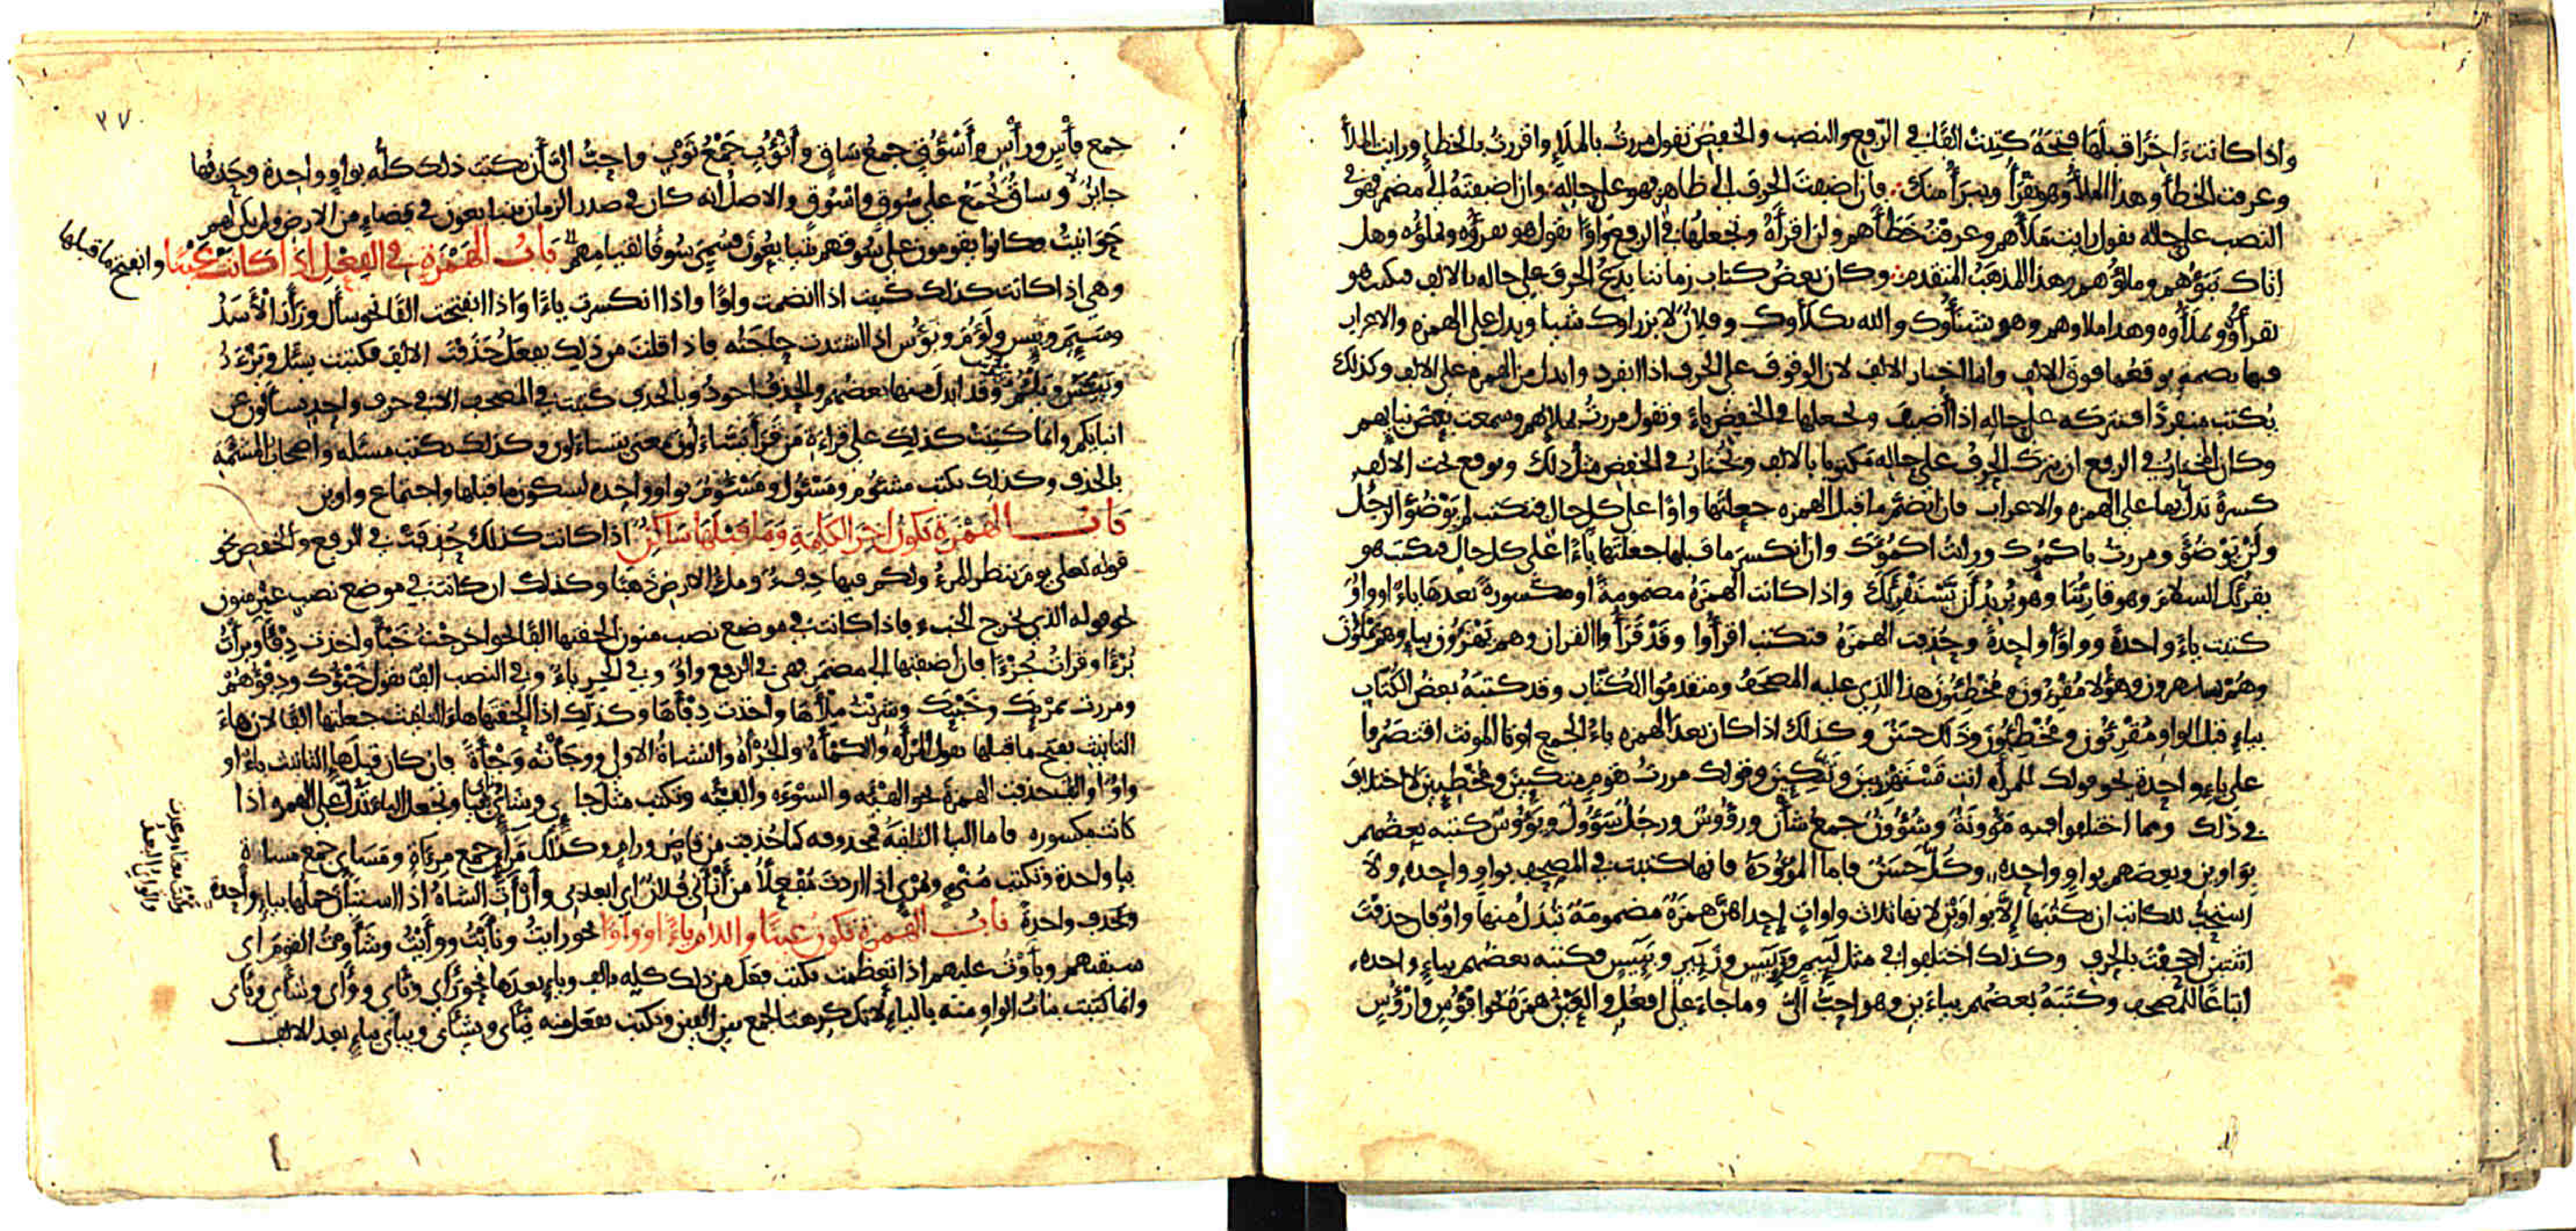 واذا كانت اخرًا قبلها فتحة كتبت الفًا في الرفع والنصب والخفض تقول مررت بالملإ واقررت بالخطإ ورايت الملأ
وعرفت الخطأ وهذا الملأ وهو يقرأ ويبرأ منك فان اضفت الحرف الى ظاهر فهو على حاله وان اضفته الى مضمر فهو في
النصب على حاله تقول رايت ملأهم وعرفت خطأهم ولن اقرأه وتجعلها في الرفع واوًا تقول هو يقرؤه ويملؤه وهل
اتاك نبؤهم وملؤهم وهذا المذهب المتقدم وكان بعض كتاب زماننا يدع الحرف على حاله بالالف فيكتب هو
يقرأوه ويملأوه وهذا ملاوهم وهو يشنأوك والله يكلأوك وفلان لا يرزاوك شيا ويدل على الهمزه والاعراب
فيها بضمه يوقعها فوق الالف وانما اختار الالف لان الوقوف على الحرف اذا انفرد وابدل من الهمزه على الالف وكذلك
يكتب منفردًا فتركه على حاله اذا اضيف وتجعلها في الخفض ياءً وتقول مررت بملائهم وسمعت بعض نبايهم
وكان المختار في الرفع ان يترك الحرف على حاله مكتوبا بالالف ويختار في الخفض مثل ذلك ويوقع تحت الالف
كسرةً تدل بها على الهمزه والاعراب فان انضم ما قبل الهمزه جعلتها واوًا على كل حال فتكتب لم يوضؤ الرجل
ولن يوضؤ ومررت باكمؤك ورايت اكمؤك وان انكسر ما قبلها جعلتها ياءً على كل حال فيكتب هو
يقرئك السلام وهو قارئنا وهو يريد ان يستقرئك واذا كانت الهمزة مضمومة او مكسورة بعدها ياء او واو
كتبت ياءً واحدةً وواوًا واحدةً وحذفت الهمزة فتكتب اقرأوا وقد قرأوا القران وهم يهزؤن بنا وهم يملؤن
وهم يستهزون وهؤلا مقرؤن ومخطئون هذا الذي عليه المصحف ومتقدموا الكتاب وقد كتبه بعض الكتاب
بياء قبل الواو مقرئون ومخطئون وذلك حسن وكذلك اذا كان بعد الهمزه ياء الجمع او يا المونث اقتصروا
على ياء واحدة نحو قولك للمرأه انت تستهزين وتتكين وقولك مررت بقوم متكين ومخطين لا اختلاف
في ذلك ومما اختلفوا فيه مؤونة وشؤون جمع شأن ورؤوس ورجل سؤول ويؤوس كتبه بعضهم
بواوين وبعضهم بواو واحده وكل حسن فاما الموؤدة فانها كتبت في المصحف بواو واحده ولا
استحب للكاتب ان يكتبها الا بواوين لانها ثلاث واوات احداهن همزة مضمومة تبدل منها واو فان حذفت
اثنتين اجحفت بالحرف وكذلك اختلفوا في مثل لئيم ورئيس وزئير وبئيس فكتبه بعضهم بياء واحده
اتباعًا للمصحف وكتبه بعضهم بياءين وهو احب الي وما جاء على افعل والعين همزة نحو افؤس وارؤس
٣٧
جمع فأس ورأس واسؤق جمع ساق واثؤب جمع ثوب واحب الي أن يكتب ذلك كله بواو واحدة وحذفها
جائز وساق تجمع على سوق واسوق والاصل انه كان في صدر الزمان يتبايعون في فضاء من الارض ولم يكن لهم
حوانيت فكانوا يقومون على سوقهم يتبايعون فسمي سوقًا لقيامهم باب الهمزة في الفعل اذا كانت عينًا وانفتح ما قبلها
وهي اذا كانت كذلك كتبت اذا انضمت واوًا واذا انكسرت ياءًا واذا انفتحت الفًا نحو سأل وزأر الأسد
وسيم وبيس ولؤم وبؤس اذا اشتدت حاجته فاذا قلت من ذلك يفعل حذفت الالف فكتبت يسئل ويزءر
ويبئس ويلؤم وقد ابدل منها بعضهم والحذف اجود وبالحذف كتبت في المصحف الا في حرف واحد يسالون عن
انبائكم وانما كتبت كذلك على قراءة من قرأ يسّاءلون بمعنى يتساءلون وكذلك يكتب مسئله واصحاب المشئمة
بالحذف وكذلك يكتب مشئوم ومسئول ومسئوم بواو واحده لسكون ما قبلها واجتماع واوين
باب الهمزة تكون اخر الكلمة وما قبلها ساكن اذا كانت كذلك حذفت في الرفع والخفض نحو
قوله تعلى يوم ينظر المرء ولكم فيها دفء وملء الارض ذهبا وكذلك ان كانت في موضع نصب غير منون
نحو قوله الذي يخرج الخبء فاذا كانت في موضع نصب منون الحقتها الفا نحو اخرجت خبأ واخذت دفأ وبرأت
برءًا وقرات جزءًا فان اضفتها الى مضمر فهي في الرفع واو وفي الجر ياء وفي النصب الف تقول خبؤك ودفؤهم
ومررت بمرئك وخبئك وشربت ملأها واخذت دفأها وكذلك اذا الحقتها هاء التانيث جعلتها الفا لان هاء
التانيث يفتح ما قبلها تقول المرأه والكمأة والجرأه والنشاة الاولى ووجأته وجأةً فان كان قبلها التانيث ياءً او
واوًا او الف حذفت الهمزة نحو الهيئه والسوءه والفيئه وتكتب مثل جائي وشائي ونائي وتجعل الياء تدل على الهمز واذا
كانت مكسوره فاما اليا الثانية فمحذوفه كما حذفت من قاض ورام وكذلك مرائي جمع مرءاة ومسائي جمع مساة
بيا واحدة وتكتب منئي ومرئي اذا اردت مفعلًا من أنأني فلان اي ابعدني وأرأت الشاة اذا استبان حملها بياء واحدة
وتحذف واحدة باب الهمزة تكون عينا واللام ياءً او واوًا نحو رايت ونأيت ووأيت وشأوت القوم اي
سبقتهم وبأوت عليهم اذا تعظمت فكتب فعل من ذلك كله بالف وياء بعدها نحو رأى ونأى ووأى وشأى وبأى
وانما كتبت بنات الواو منه بالياء لانك كرهت الجمع بين الفين وتكتب يفعل منه ينأى ويشأى ويبأى بياء بعد الالف